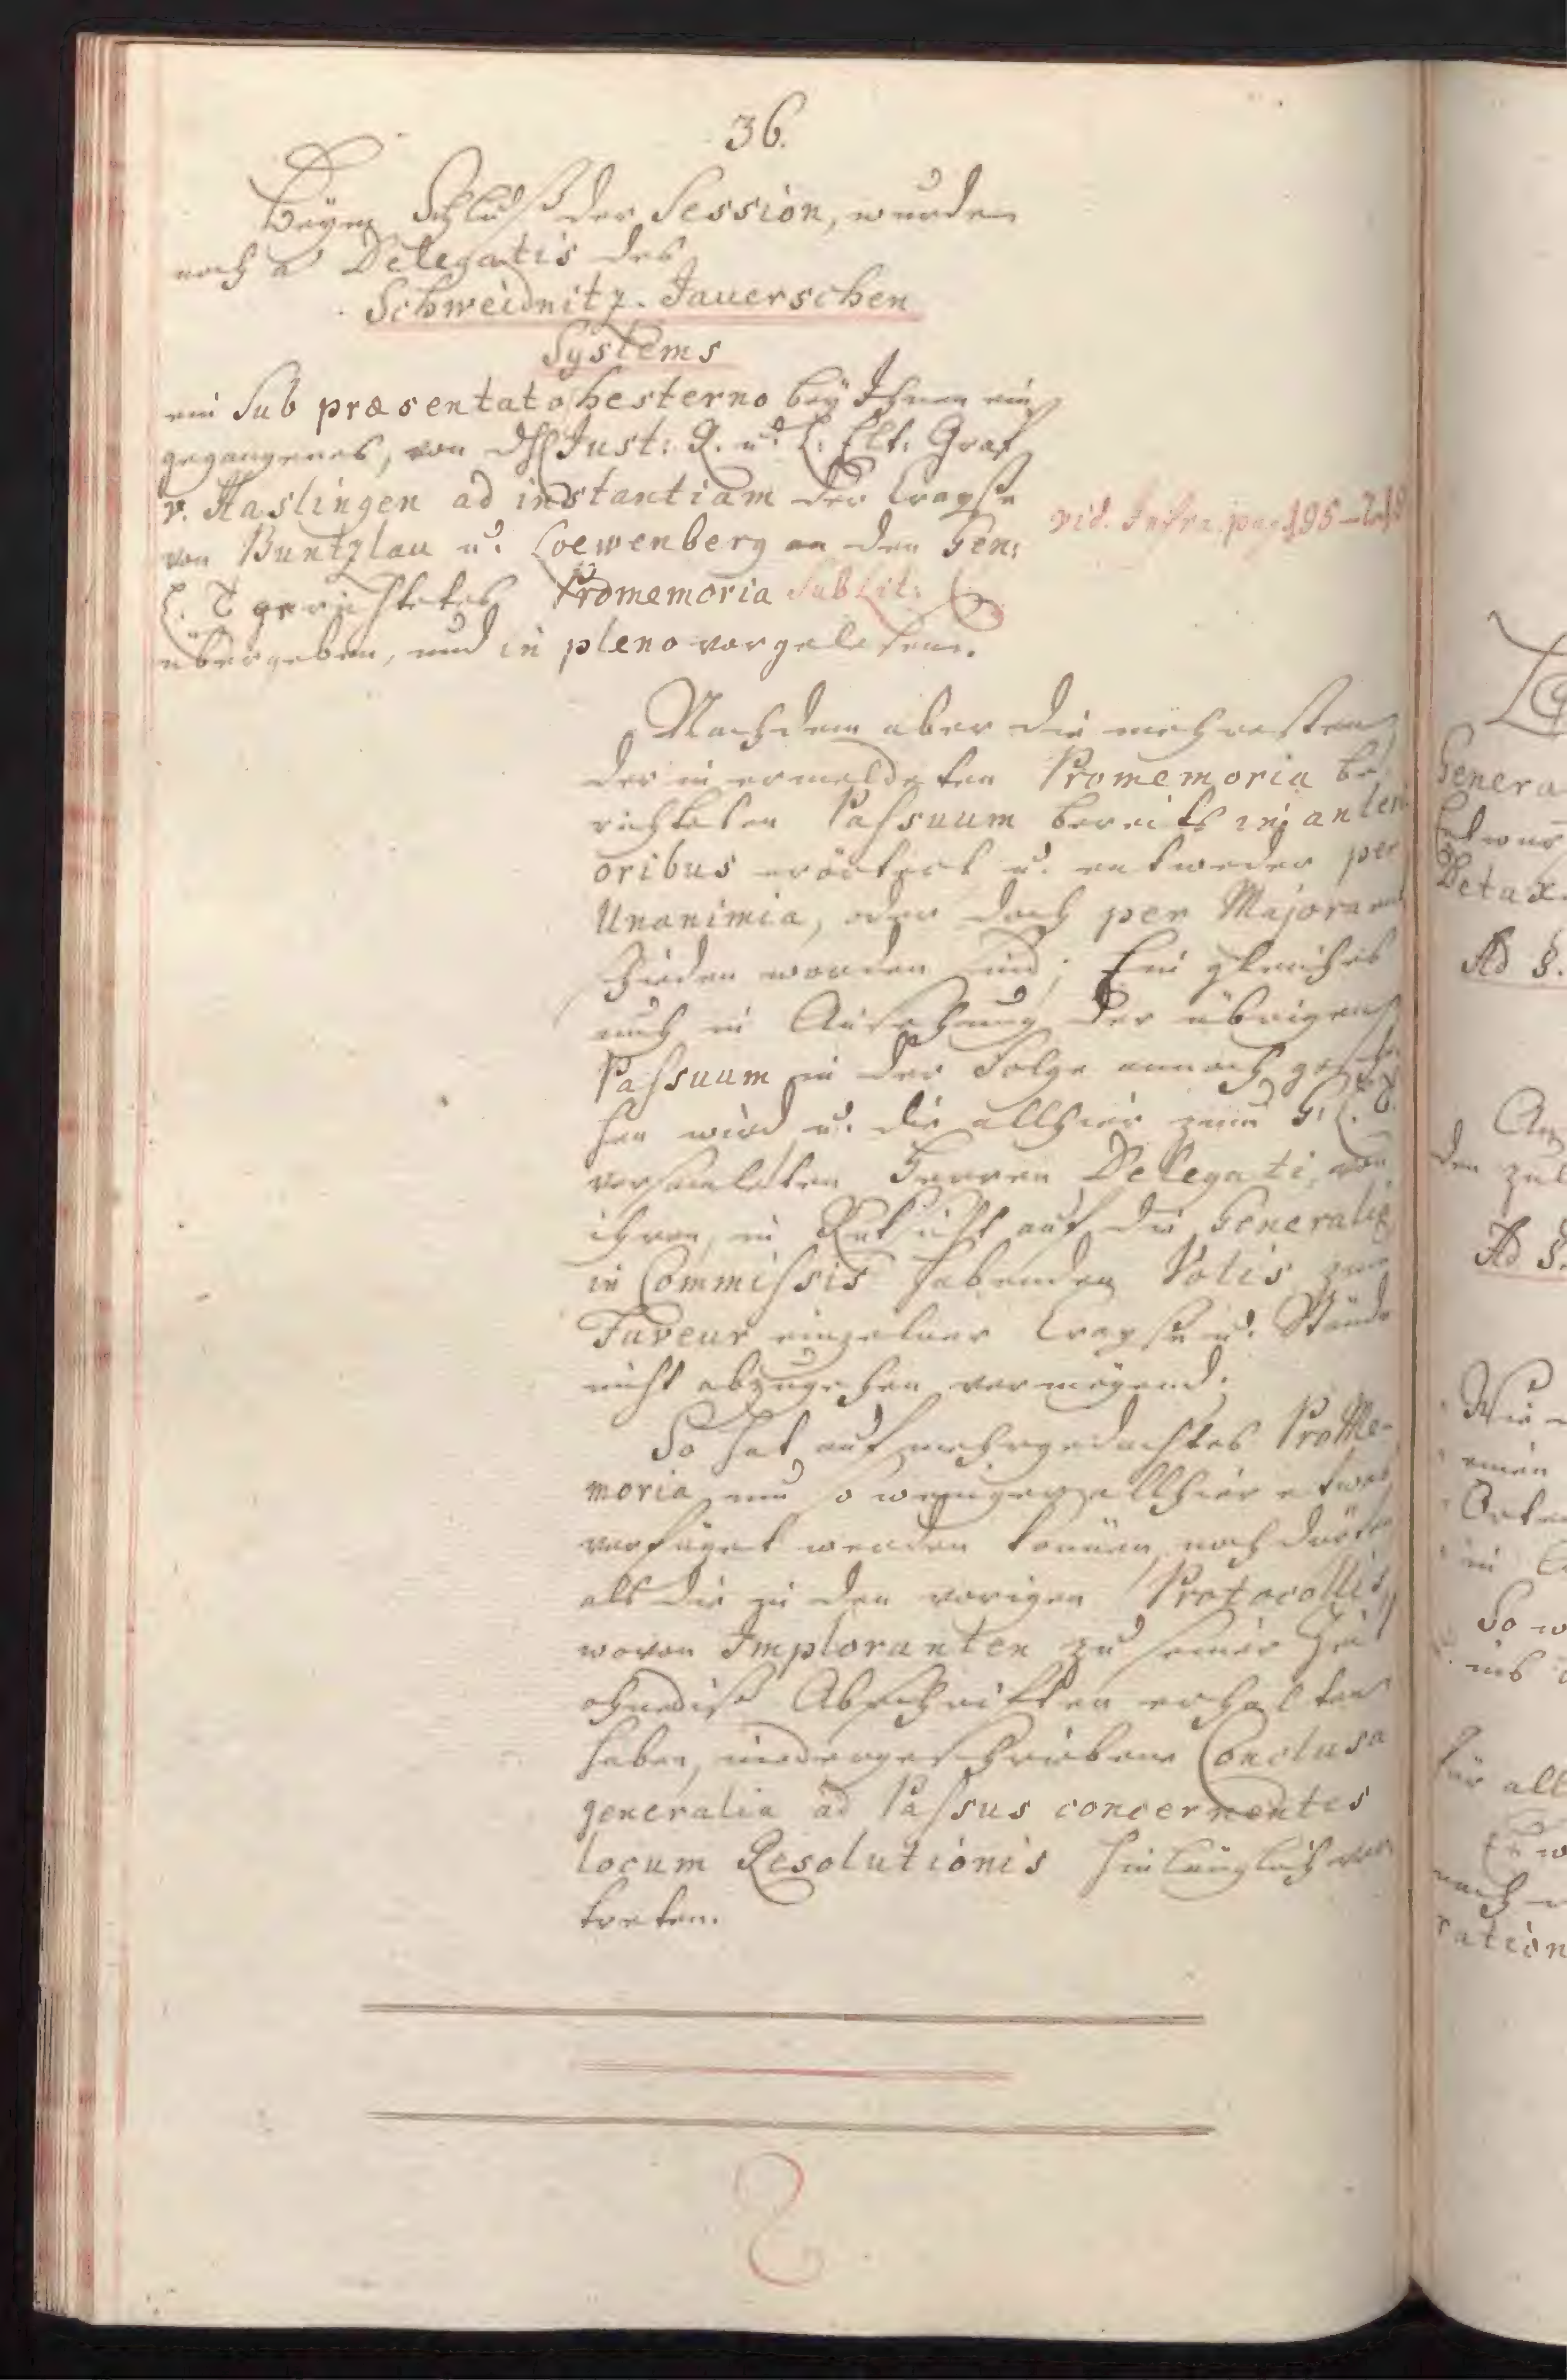 36.
Beym Schluß der Session, wurde
noch a Delegatis des
Schweidnitz-Jauerschen
Systems
ein Sub præsentato hesterno bey Ihnen ein
gegangenes, von Just: R. u. L. Elt: Graf
v. Haslingen ad instantiam der Crayse
von Buntzlau u. Loewenberg an den Gen:
L. T gerichtetes Promemoria Sub Lit:
übergeben, und in pleno vorgelesen.
vid. Infra. pag 195-
Nachdem aber die mehresten
der in ermeldeten Promemoria be-
richteten Passuum bereits in anteri
oribus erörtert u. entweder per
Unanimia, oder doch per Majora ent
schieden worden sind; Ein gleiches
auch in Ansehung der übrigen
Passuum in der Folge annoch gesche
hen wird u. die allhier zum G. L. T.
versamleten Herren Delegati, von
ihren, in Rücksicht auf die Generalia
in Commissis habenden Votis zum
Faveur einzelner Crayse u. Stände
nicht abzugehen vermögend;
So hat auf mehrgedachtes ProMe-
moria um so weniger allhier etwas
verfüget werden können, noch dürfen
als die zu den vorigen Protocollis,
wovon Imploranten zu seiner Zeit
ohnediß Abschriften erhalten
haben, niedergeschriebene Conclusa
generalia ad Passus concernentes
locum Resolutionis hinlänglich ver
treten.
Genera
Entwur
Detax.
Ad §.
den zul
Ad §.
Wie
einen
Orte
in
So w
ins
für all
Es w
nach
ration